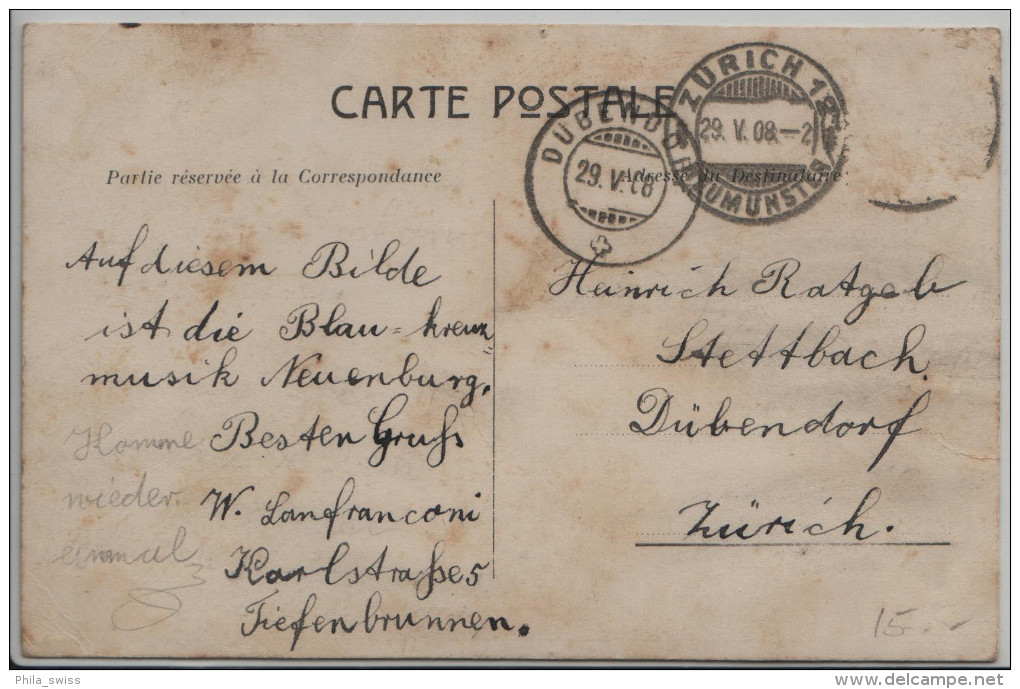 CARTE POSTALE
ZÜRICH 12
29. V. 08.–2
FRAUMÜNSTER
DÜBENDORF
29. V. 08
Partie réservée à la Correspondance
Adresse du Destinataire
Auf diesem Bilde
ist die Blau=kreuz
musik Neuenburg.
Besten Gruß
W. Lanfranconi
Karlstraße 5
Tiefenbrunnen.
Komme
wieder
einmal
Heinrich Ratgeb
Stettbach
Dübendorf
Zürich.
15.-
Phila_swiss
delcampe.net